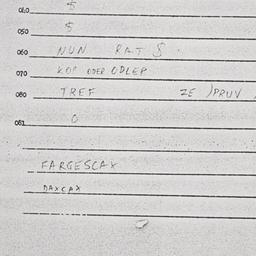 040 $
050 $
060 NUN RAT $
070 KOP ODER ODLER
080 TREF ZE )PRUV
081 0
FARGESCAX
DAXCAX